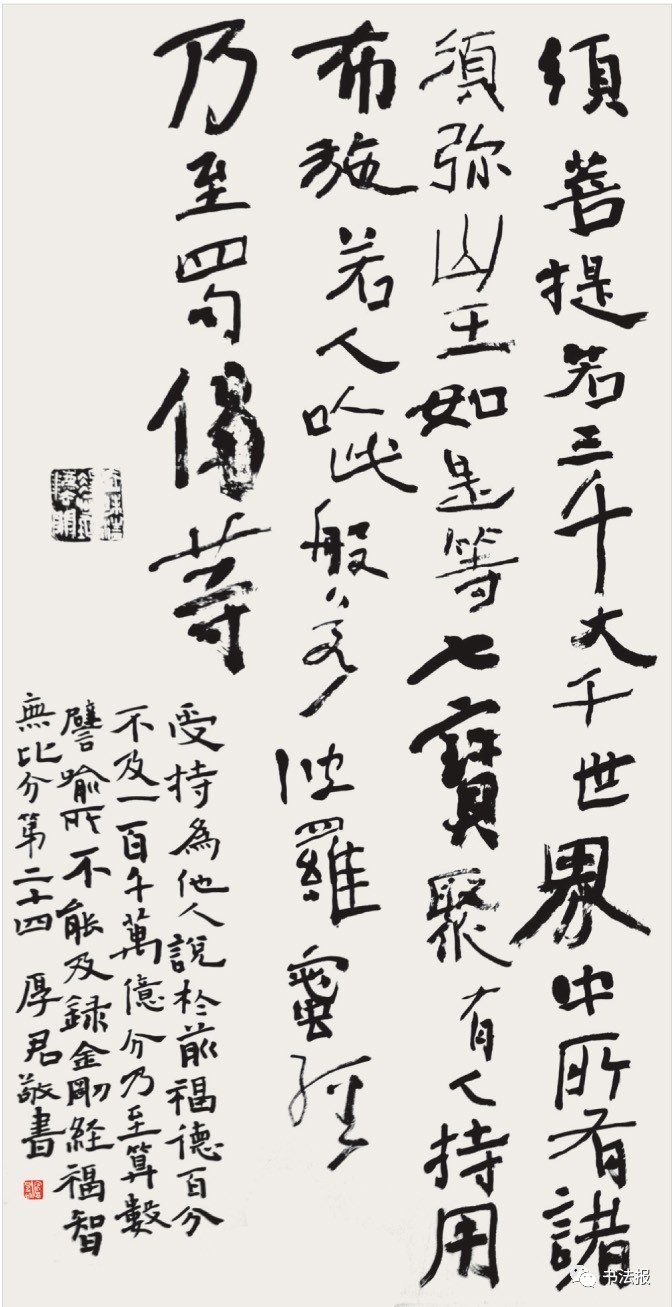 須菩提若三千大千世界中所有諸
須弥山王如是等七寶聚有人持用
布施若人以此般若波羅蜜經
乃至四句偈等
受持為他人說於前福德百分
不及一百千萬億分乃至算數
譬喻所不能及録金剛経福智
無比分第二十四 厚君敬書
书法报